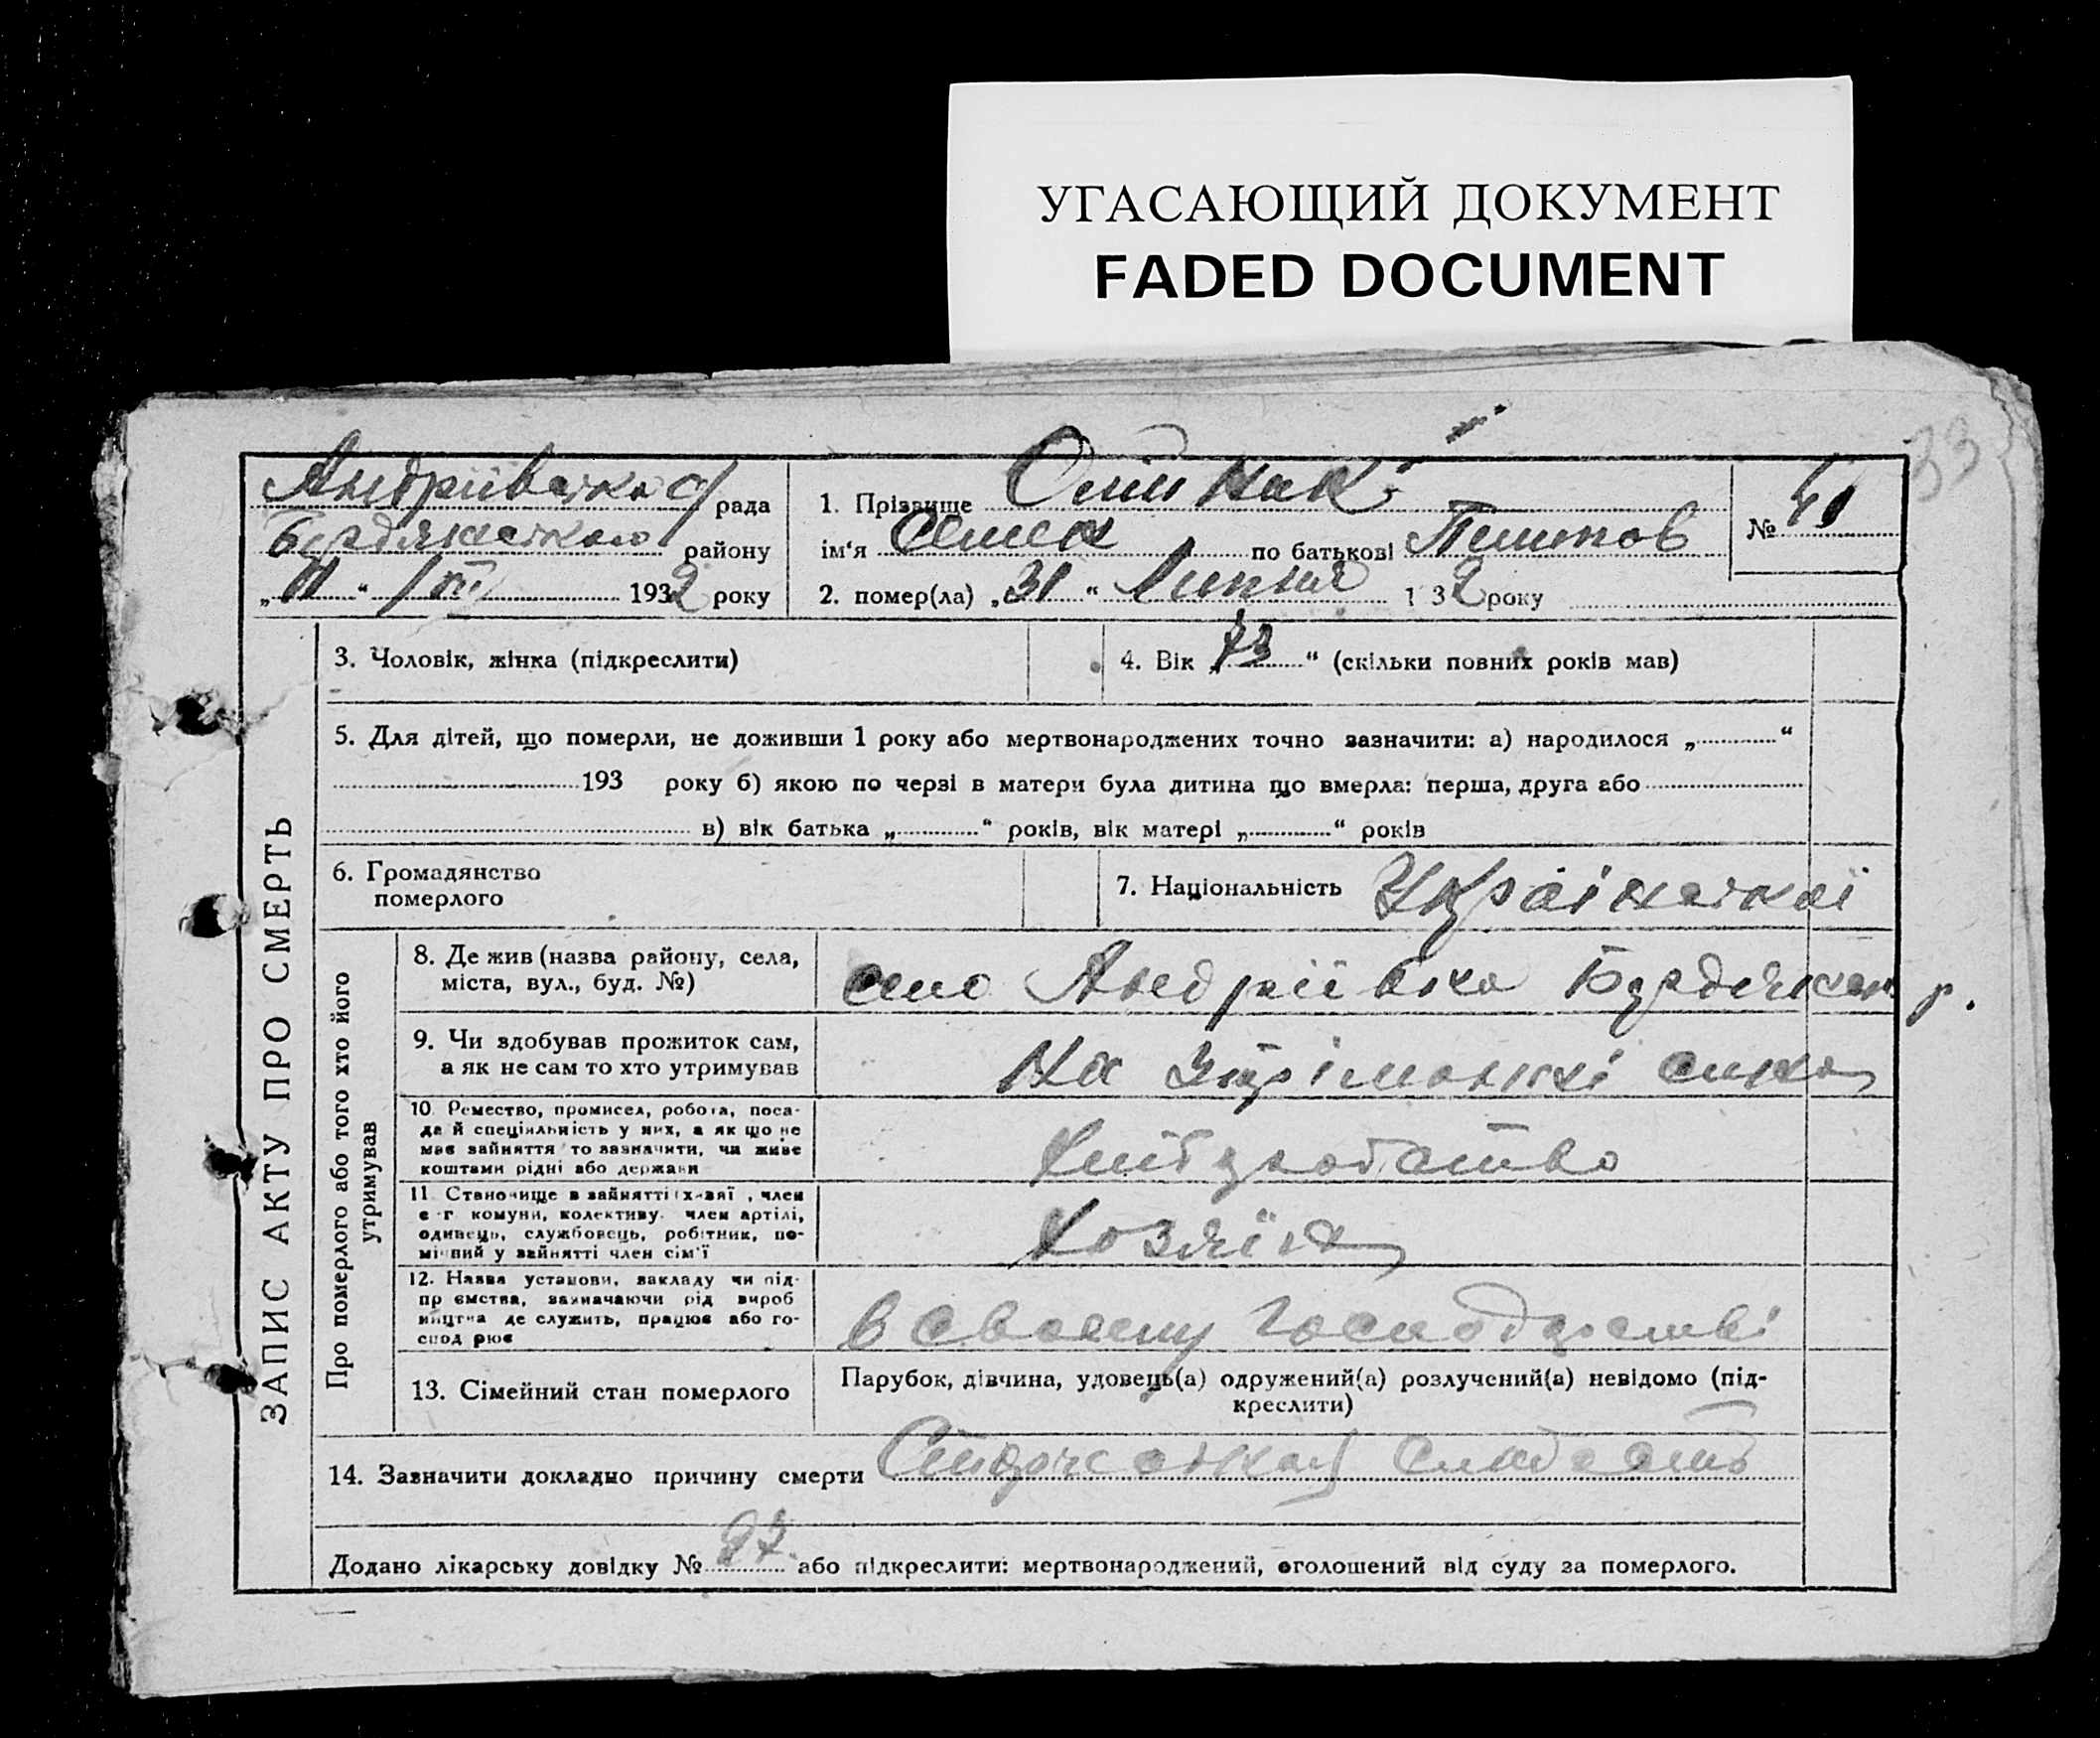 УГАСАЮЩИЙ ДОКУМЕНТ
FADED DOCUMENT
33
Андріївська с/рада
Бердянського району
„11“ /VIII 1932 року
1. Прізвище Олійник
ім‘я Семен по батькові
2. помер(ла) „31“ Липня 1 32 року
№ 41
ЗАПИС АКТУ ПРО СМЕРТЬ
3. Чоловік, жінка (підкреслити)
4. Вік „73“ (скільки повних років мав)
5. Для дітей, що померли, не доживши 1 року або мертвонароджених точно зазначити: а) народилося „ “
193 року б) якою по черзі в матери була дитина що вмерла: перша, друга або
в) вік батька „ “ років, вік матері „ “ років
6. Громадянство
померлого
7. Національність Українській
Про померлого або того хто його
утримував
8. Де жив (назва району, села,
міста, вул., буд. №)
село Андріївка Бердянськ. р.
9. Чи здобував прожиток сам,
а як не сам то хто утримував
На сина
10. Ремество, промисел, робота, поса-
да й спеціяльність у них, а як що не
має зайняття то зазначити, чи живе
коштами рідні або держави
11. Становище в зайнятті (х-зяї , член
с-г комуни, колективу. член артілі,
одинець, службовець, робітник, по-
мічний у зайнятті член сім‘ї
Хозяїн
12. Назва установи, закладу чи під-
пр ємства, зазначаючи рід вироб
ництва де служить, працює або го-
спод рює
в своєму господарстві
13. Сімейний стан померлого
Парубок, дівчина, удовець(а) одружений(а) розлучений(а) невідомо (під-
креслити)
14. Зазначити докладно причину смерти
Додано лікарську довідку № 97 або підкреслити: мертвонароджений, оголошений від суду за померлого.